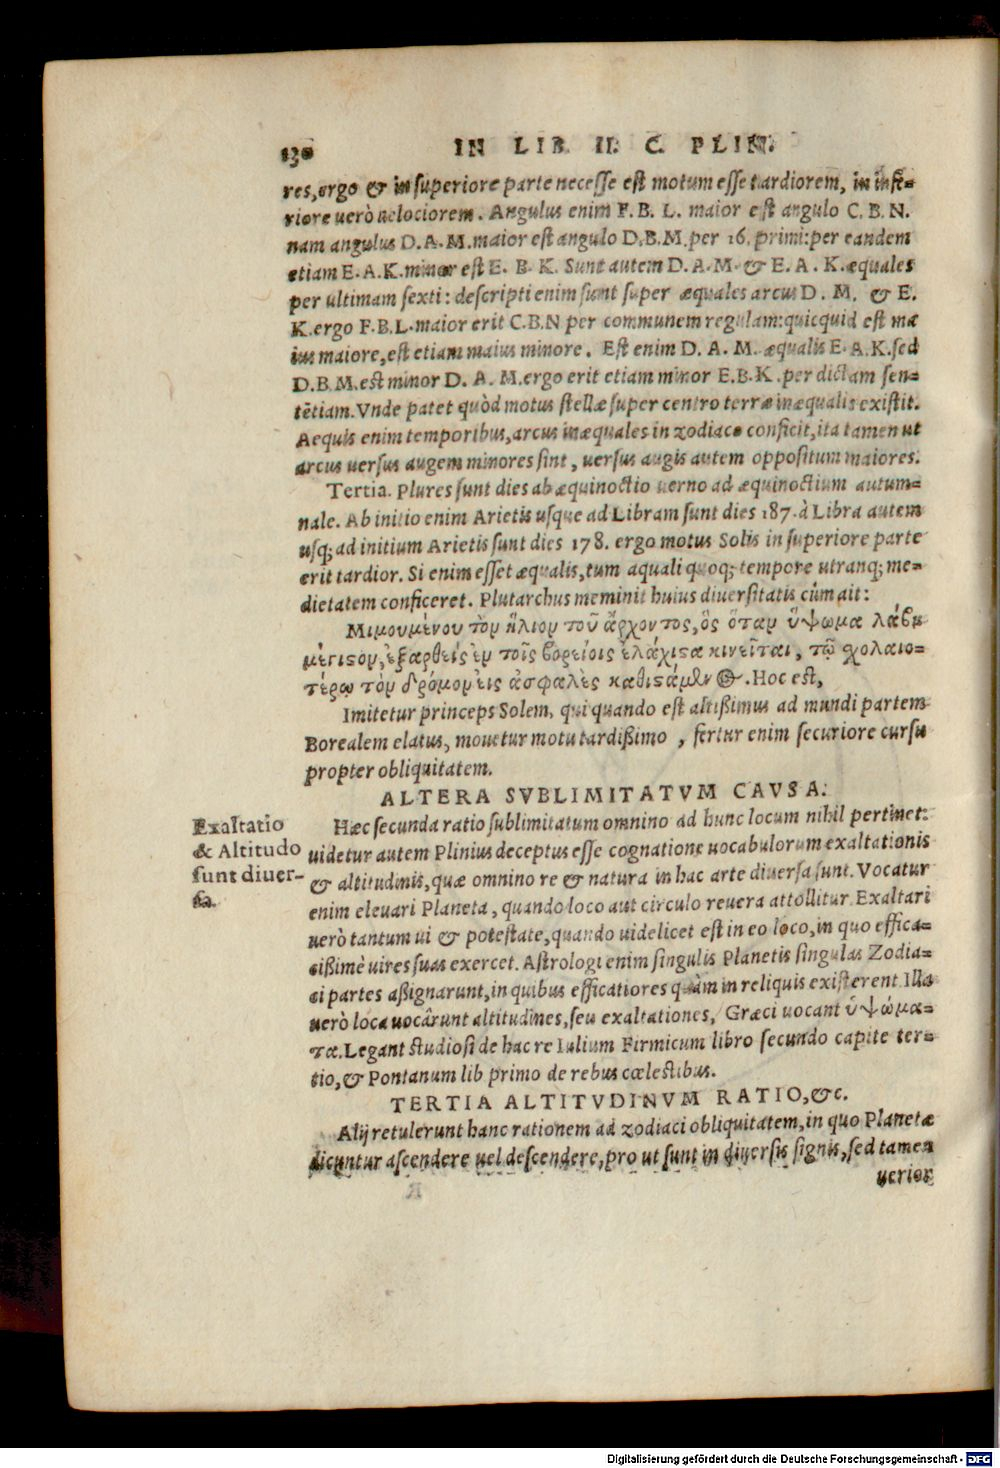 130 IN LIB. II. C. PLIN.
res, ergo & in superiore parte necesse est motum esse tardiorem, in infe-
riore uerò uelociorem. Angulus enim F. B. L. maior est angulo C. B. N.
nam angulus D. A. M. maior est angulo D. B. M. per 16. primi: per eandem
etiam E. A. K. minor est E. B. K. Sunt autem D. A. M. & E. A. K. æquales
per ultimam sexti: descripti enim sunt super æquales arcus D. M. & E.
K. ergo F. B. L. maior erit C. B. N per communem regulam: quicquid est ma
ius maiore, est etiam maius minore. Est enim D. A. M. æqualis E. A. K. sed
D. B. M. est minor D. A. M. ergo erit etiam minor E. B. K. per dictam sen-
tẽtiam. Vnde patet quòd motus stellæ super centro terræ inæqualis existit.
Aequis enim temporibus, arcus inæquales in zodiaco conficit, ita tamen ut
arcus uersus augem minores sint, uersus augis autem oppositum maiores.
Tertia. Plures sunt dies ab æquinoctio uerno ad æquinoctium autum-
nale. Ab initio enim Arietis usque ad Libram sunt dies 187. à Libra autem
usq; ad initium Arietis sunt dies 178. ergo motus Solis in superiore parte
erit tardior. Si enim esset æqualis, tum æquali quoq; tempore utranq; me-
dietatem conficeret. Plutarchus meminit huius diuersitatis cùm ait:
Μιμουμένου τὸν ἥλιον τοῦ ἄρχοντος, ὃς ὅταν ὕψωμα λάβῃ
μέγιστον, ἐξαρθεὶς ἐν τοῖς βορείοις ἐλάχιστα κινεῖται, τῷ σχολαιο-
τέρῳ τὸν δρόμον εἰς ἀσφαλὲς καθιστάμενος. Hoc est,
Imitetur princeps Solem, qui quando est altißimus ad mundi partem
Borealem elatus, mouetur motu tardißimo, fertur enim securiore cursu
propter obliquitatem.
ALTERA SVBLIMITATVM CAVSA.
Exaltatio
& Altitudo
sunt diuer-
sa.
Hæc secunda ratio sublimitatum omnino ad hunc locum nihil pertinet:
uidetur autem Plinius deceptus esse cognatione uocabulorum exaltationis
& altitudinis, quæ omnino re & natura in hac arte diuersa sunt. Vocatur
enim eleuari Planeta, quando loco aut circulo reuera attollitur. Exaltari
uerò tantum ui & potestate, quando uidelicet est in eo loco, in quo effica-
cißimè uires suas exercet. Astrologi enim singulis Planetis singulas Zodia-
ci partes aßignarunt, in quibus efficatiores quàm in reliquis existerent. Illa
uerò loca uocârunt altitudines, seu exaltationes, Græci uocant ὑψώμα-
τα. Legant studiosi de hac re Iulium Firmicum libro secundo capite ter-
tio, & Pontanum lib primo de rebus cœlestibus.
TERTIA ALTITVDINVM RATIO, &c.
Alij retulerunt hanc rationem ad zodiaci obliquitatem, in quo Planetæ
dicuntur ascendere uel descendere, pro ut sunt in diuersis signis, sed tamen
uerior
Digitalisierung gefördert durch die Deutsche Forschungsgemeinschaft - DFG